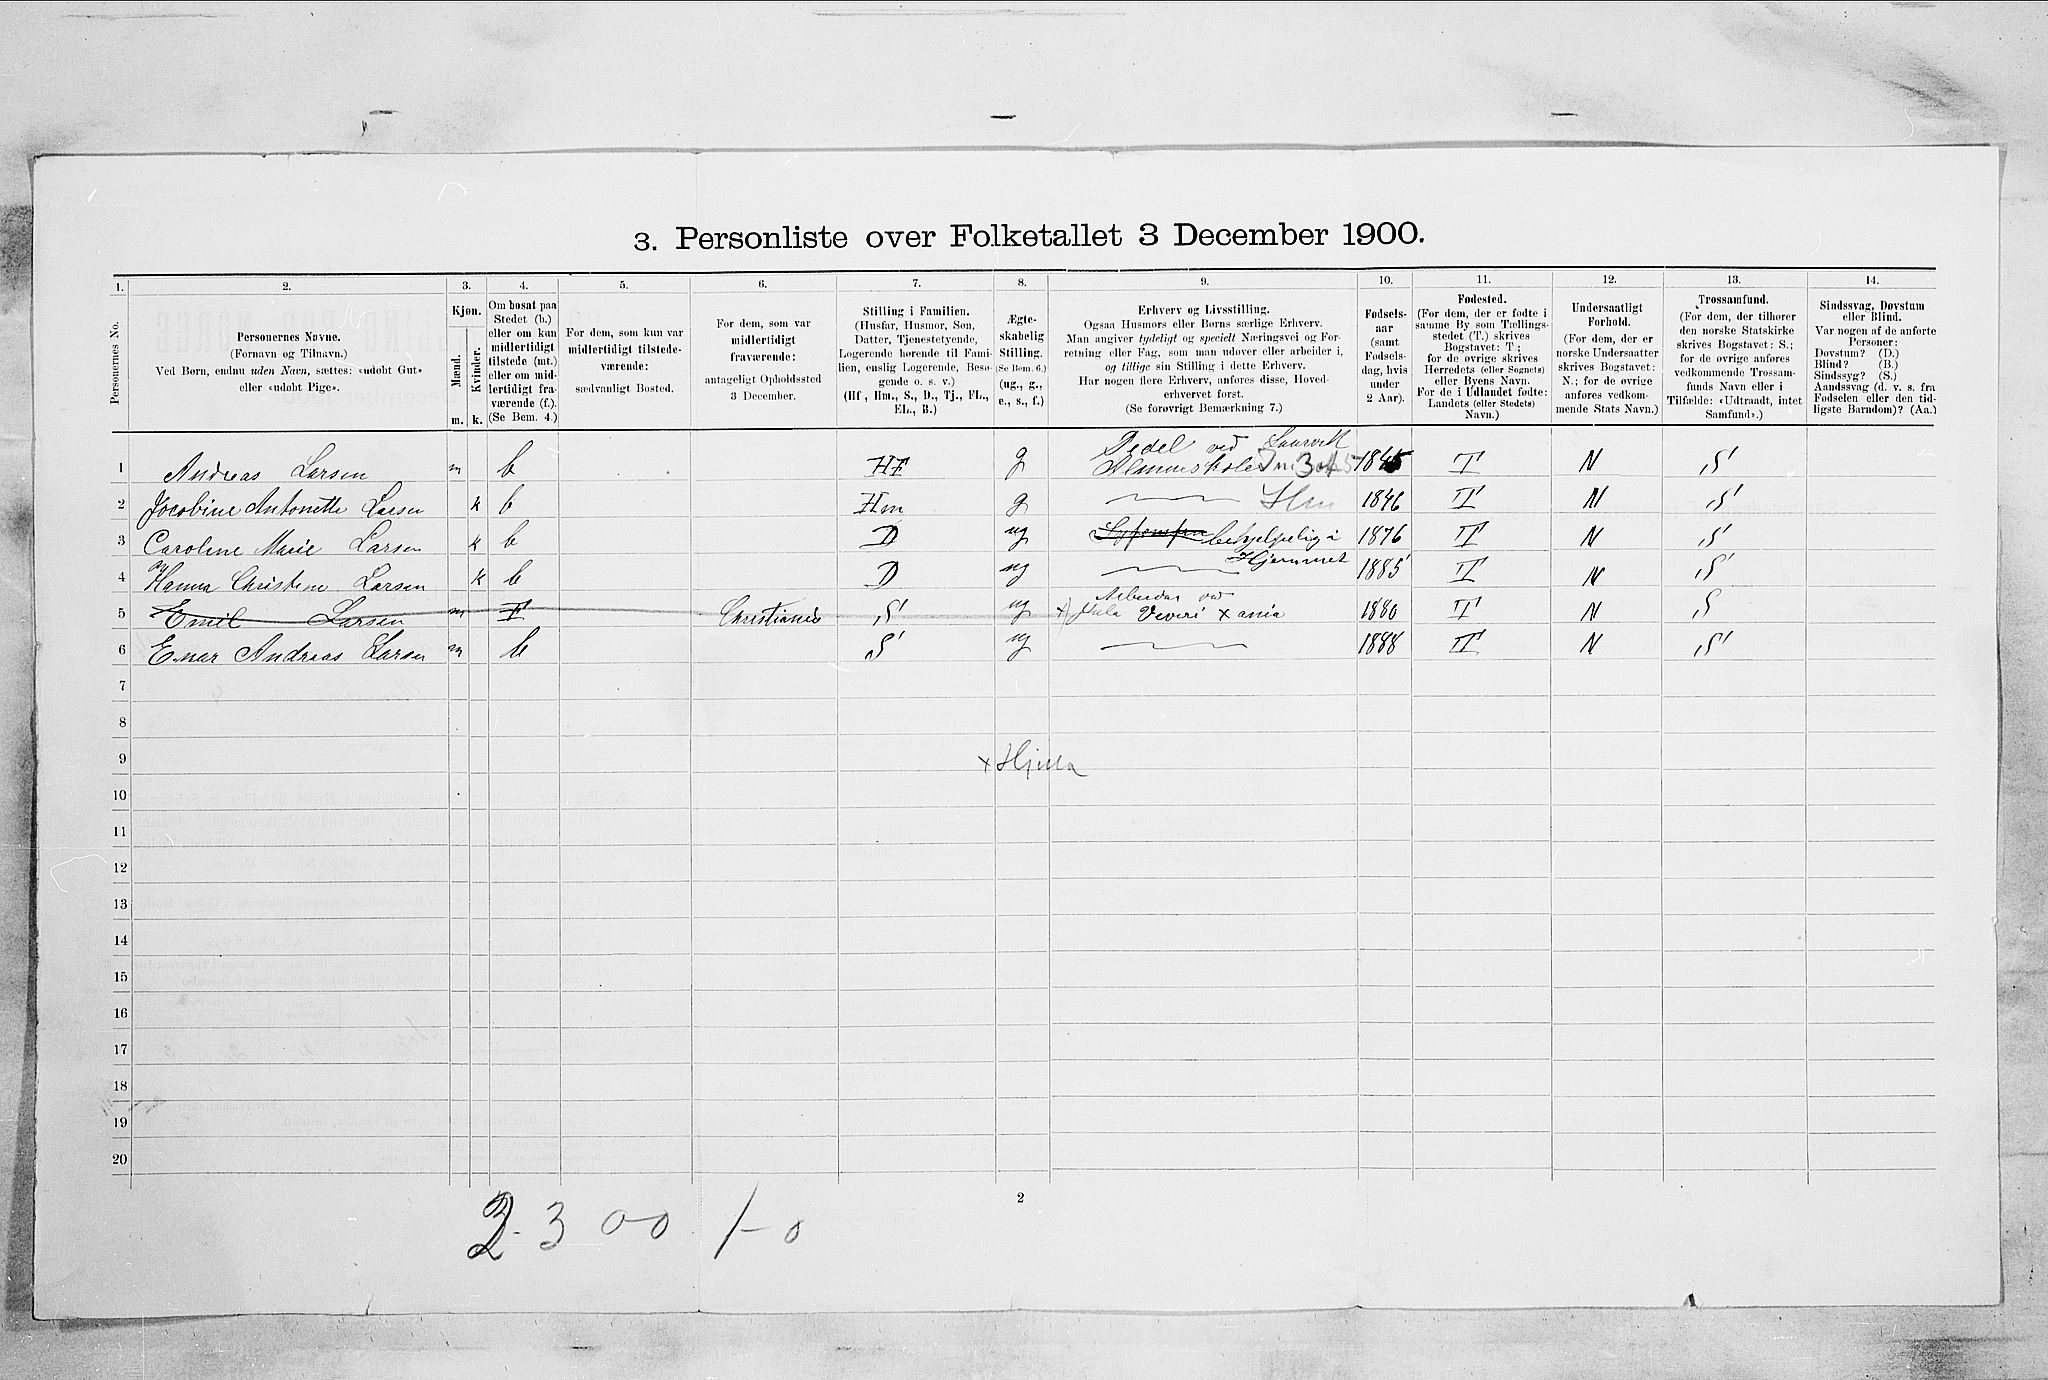 3. Personliste over Folketallet 3 December 1900.
1. 2. 3. 4. 5. 6. 7. 8. 9. 10. 11. 12. 13. 14.
Personernes No.
Personernes Navne.
(Fornavn og Tilnavn.)
Ved Børn, endnu uden Navn, sættes: «udobt Gut»
eller «udobt Pige».
Kjøn.
Mænd.
Kvinder.
m. k.
Om bosat paa
Stedet (b.)
eller om kun
midlertidigt
tilstede (mt.)
eller om mid-
lertidigt fra-
værende (f.).
(Se Bem. 4.)
For dem, som kun var
midlertidigt tilstede-
værende:
sædvanligt Bosted.
For dem, som var
midlertidigt
fraværende:
antageligt Opholdssted
3 December.
Stilling i Familien.
(Husfar, Husmor, Søn,
Datter, Tjenestetyende,
Logerende hørende til Fami-
lien, enslig Logerende, Besø-
gende o. s. v.)
(Hf., Hm., S., D., Tj., FL.,
EL., B.)
Ægte-
skabelig
Stilling.
(Se Bem. 6.)
(ug., g.,
e., s., f.)
Erhverv og Livsstilling.
Ogsaa Husmors eller Børns særlige Erhverv.
Man angiver tydeligt og specielt Næringsvei og For-
retning eller Fag, som man udover eller arbeider i,
og tillige sin Stilling i dette Erhverv.
Har nogen flere Erhverv, anføres disse, Hoved-
erhvervet først.
(Se forøvrigt Bemærkning 7.)
Fødsels-
aar
(samt
Fødsels-
dag, hvis
under
2 Aar).
Fødested.
(For dem, der er fødte i
samme By som Tællings-
stedet (T.) skrives
Bogstavet: T;
for de øvrige skrives
Herredets (eller Sognets)
eller Byens Navn.
For de i Udlandet fødte:
Landets (eller Stedets)
Navn.)
Undersaatligt
Forhold.
(For dem, der er
norske Undersaatter
skrives Bogstavet:
N.; for de øvrige
anføres vedkom-
mende Stats Navn.)
Trossamfund.
(For dem, der tilhører
den norske Statskirke
skrives Bogstavet: S.;
for de øvrige anføres
vedkommende Trossam-
funds Navn eller i
Tilfælde: «Udtraadt, intet
Samfund».)
Sindssvag, Døvstum
eller Blind.
Var nogen af de anførte
Personer:
Døvstum? (D.)
Blind? (B.)
Sindssyg? (S.)
Aandssvag (d. v. s. fra
Fødselen eller den tid-
ligste Barndom)? (Aa.)
1 Andreas Larsen m b Hf g Pedel ved Laurvik Almueskole 1845 T N S
2 Jocobine Antonette Larsen k b Hm g 1846 T N S
3 Caroline Marie Larsen k b D ug behjelpelig i Hjemmet 1876 T N S
4 Hanna Christine Larsen k b D ug 1885 T N S
5 Emil Larsen m f Christiania S ug Arbeider ved Hula Veveri x ania 1880 T N S
6 Enar Andreas Larsen m b S ug 1888 T N S
7
8
9 x Hjula
10
11
12
13
14
15
16
17
18
19
20
2
2-3 0-0 1-0